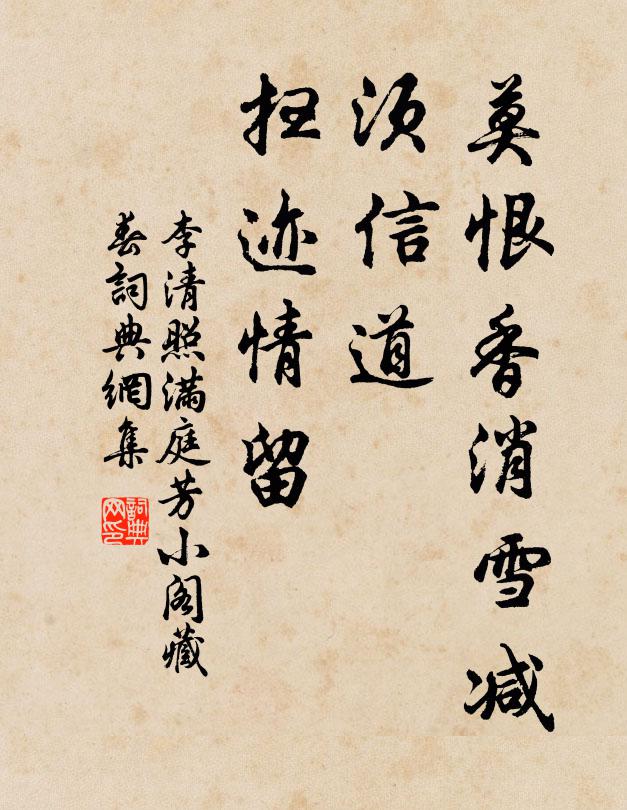 莫恨香消雪减
须信道
扫迹情留
李清照满庭芳小阁藏
春词典网集
詞典
网印